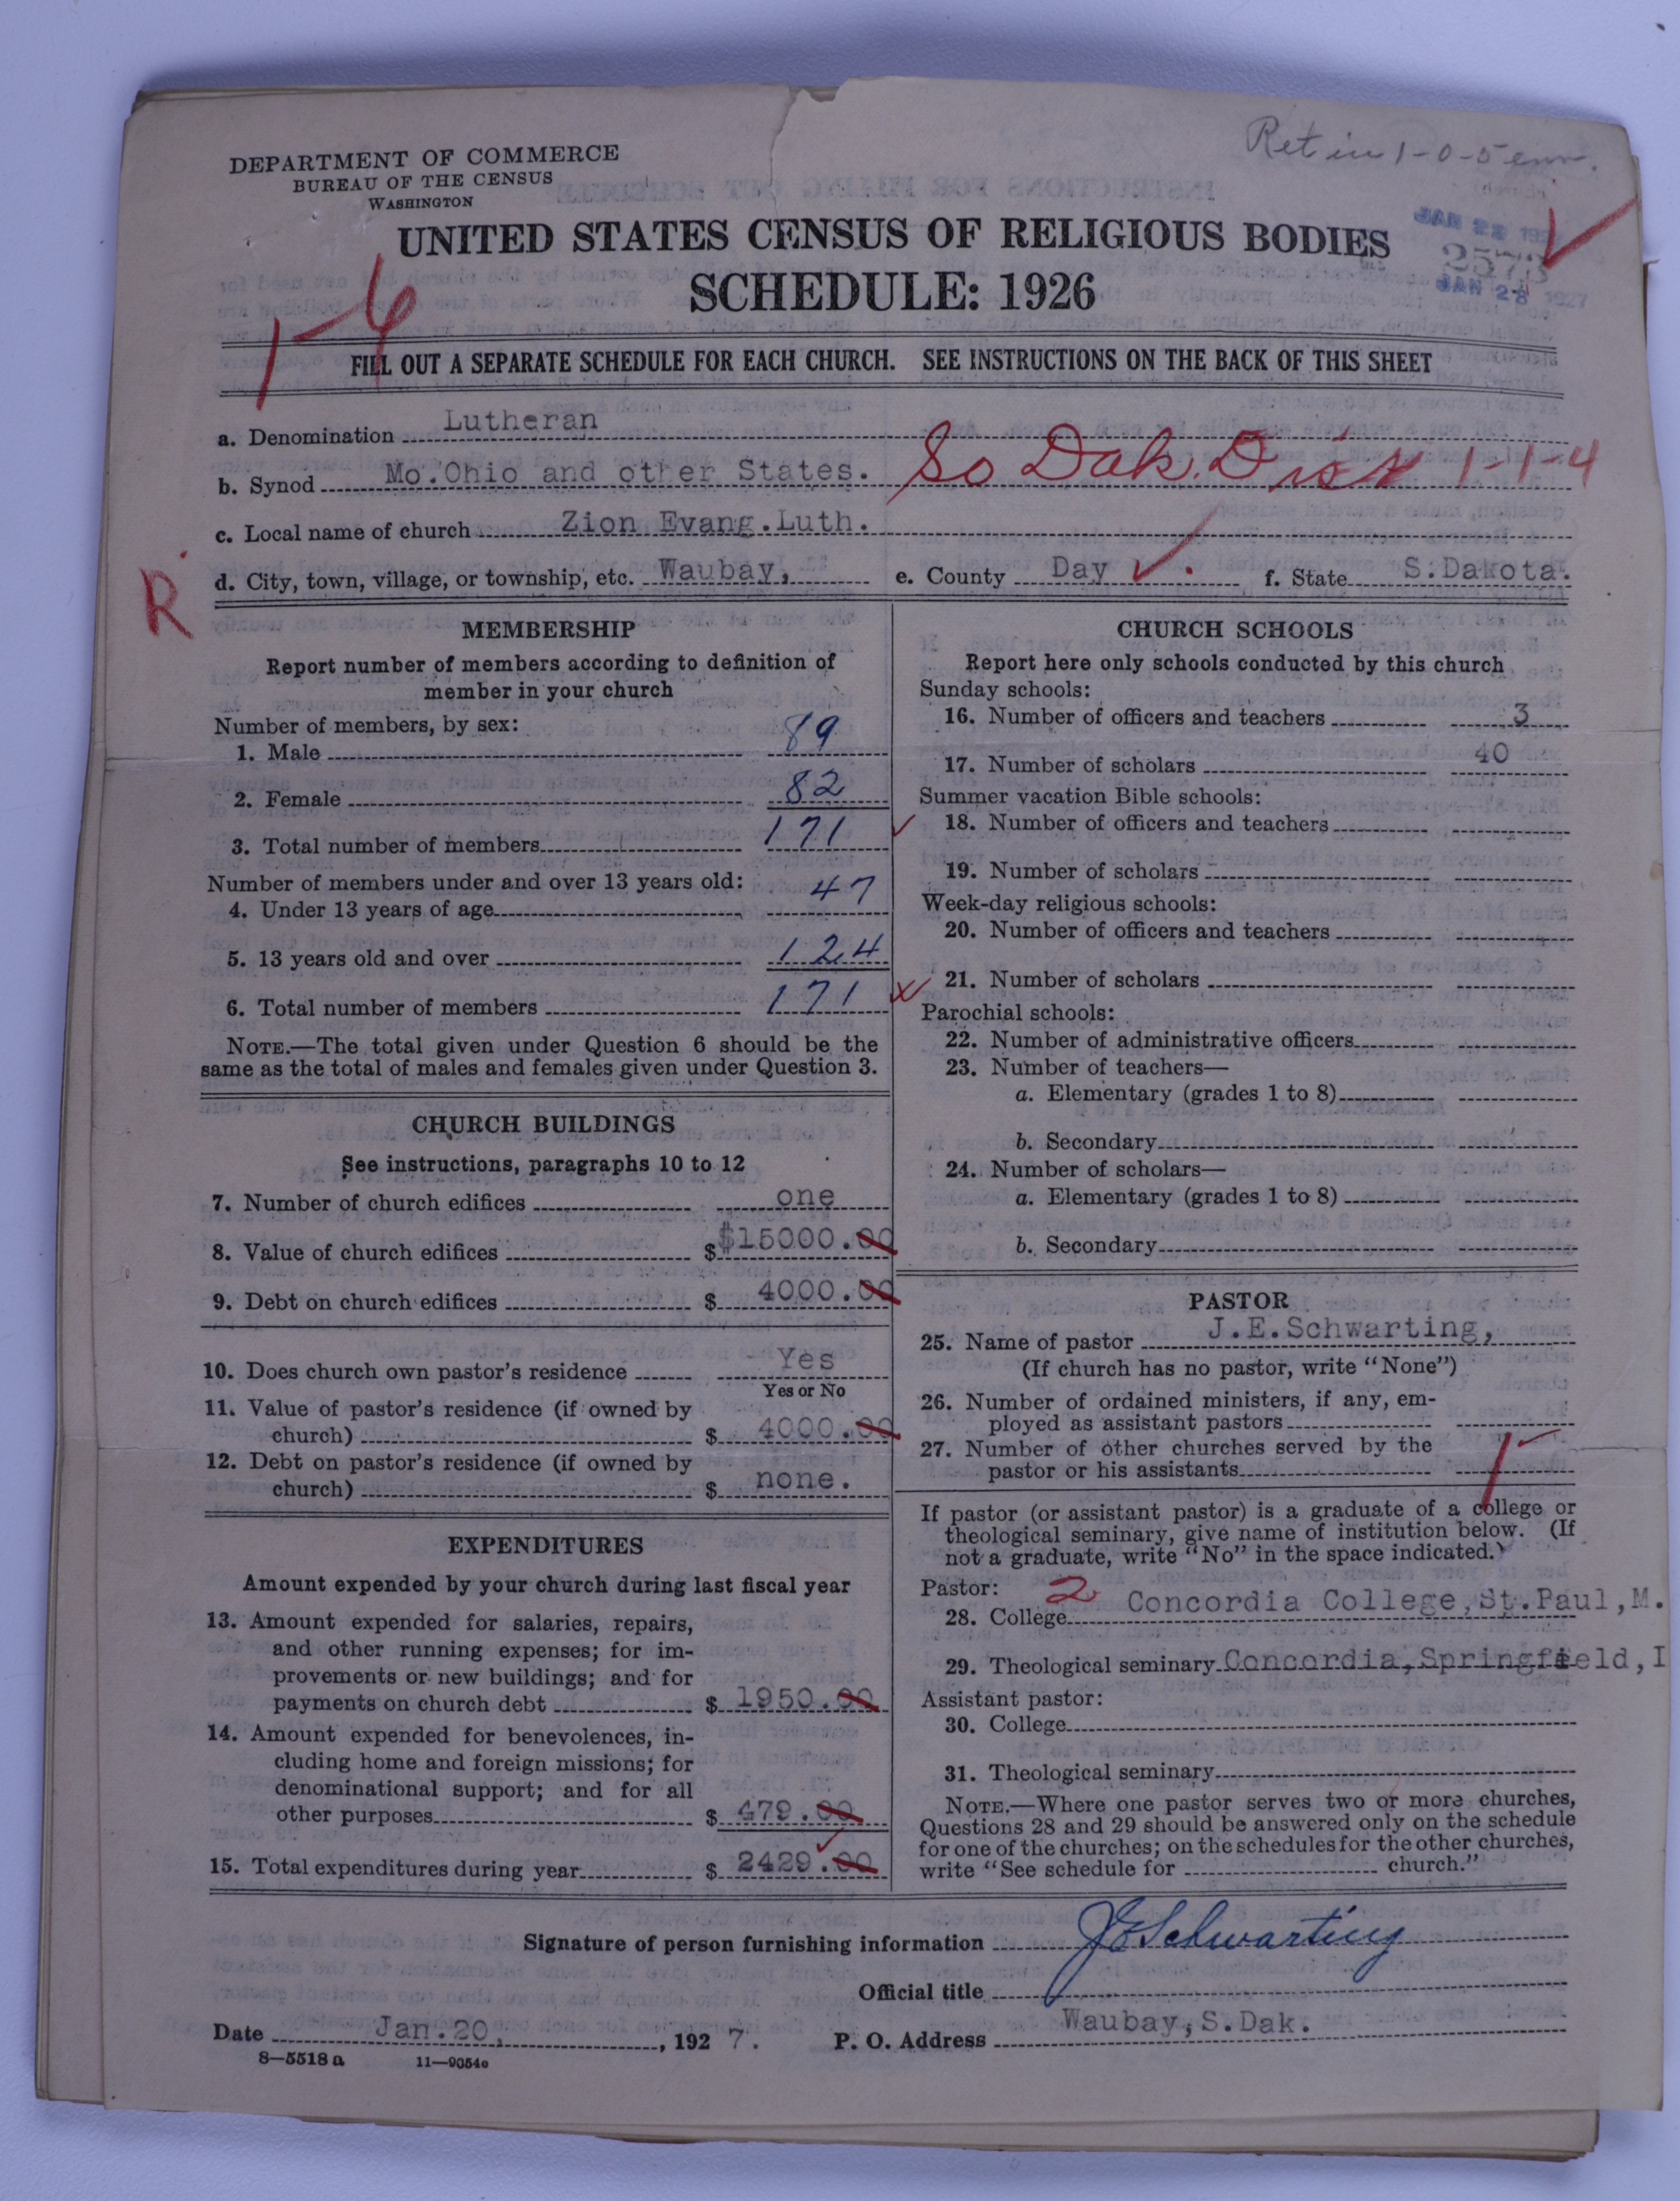 Ret in 1-0-5 env.
DEPARTMENT OF COMMERCE
BUREAU OF THE CENSUS
WASHINGTON
UNITED STATES CENSUS OF RELIGIOUS BODIES
SCHEDULE: 1926
JAN 28 192
2573
JAN 28 1927
1-6
FILL OUT A SEPARATE SCHEDULE FOR EACH CHURCH. SEE INSTRUCTIONS ON THE BACK OF THIS SHEET
a. Denomination Lutheran
b. Synod Mo.Ohio and other States. So Dak. Dist 1-1-4
c. Local name of church Zion Evang.Luth.
d. City, town, village, or township, etc. Waubay, e. County Day f. State S.Dakota.
R
MEMBERSHIP
Report number of members according to definition of
member in your church
Number of members, by sex:
1. Male 89
2. Female 82
3. Total number of members 171
Number of members under and over 13 years old:
4. Under 13 years of age 47
5. 13 years old and over 124
6. Total number of members 171
NOTE.—The total given under Question 6 should be the
same as the total of males and females given under Question 3.
CHURCH BUILDINGS
See instructions, paragraphs 10 to 12
7. Number of church edifices one
8. Value of church edifices $ $15000.00
9. Debt on church edifices $ 4000.00
10. Does church own pastor's residence Yes
Yes or No
11. Value of pastor's residence (if owned by
church) $ 4000.00
12. Debt on pastor's residence (if owned by
church) $ none.
EXPENDITURES
Amount expended by your church during last fiscal year
13. Amount expended for salaries, repairs,
and other running expenses; for im-
provements or new buildings; and for
payments on church debt $ 1950.00
14. Amount expended for benevolences, in-
cluding home and foreign missions; for
denominational support; and for all
other purposes $ 479.00
15. Total expenditures during year $ 2429.00
CHURCH SCHOOLS
Report here only schools conducted by this church
Sunday schools:
16. Number of officers and teachers 3
17. Number of scholars 40
Summer vacation Bible schools:
18. Number of officers and teachers
19. Number of scholars
Week-day religious schools:
20. Number of officers and teachers
21. Number of scholars
Parochial schools:
22. Number of administrative officers
23. Number of teachers—
a. Elementary (grades 1 to 8)
b. Secondary
24. Number of scholars—
a. Elementary (grades 1 to 8)
b. Secondary
PASTOR
25. Name of pastor J.E.Schwarting,
(If church has no pastor, write "None")
26. Number of ordained ministers, if any, em-
ployed as assistant pastors
27. Number of other churches served by the
pastor or his assistants
If pastor (or assistant pastor) is a graduate of a college or
theological seminary, give name of institution below. (If
not a graduate, write "No" in the space indicated.)
Pastor: 2
28. College Concordia College,St.Paul,M.
29. Theological seminary Concordia,Springfield,I
Assistant pastor:
30. College
31. Theological seminary
NOTE.—Where one pastor serves two or more churches,
Questions 28 and 29 should be answered only on the schedule
for one of the churches; on the schedules for the other churches,
write "See schedule for church."
Signature of person furnishing information JESchwarting
Official title
Date Jan.20, , 1927. P. O. Address Waubay,S.Dak.
8—5518 a 11—9054e